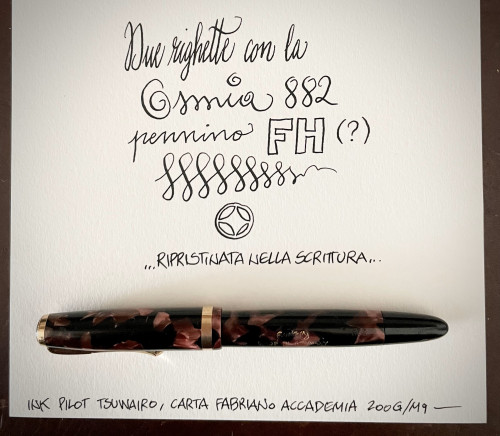 Due righette con la
Osmia 882
pennino FH (?)
...RIPRISTINATA NELLA SCRITTURA...
INK PILOT TSUWAIRO, CARTA FABRIANO ACCADEMIA 200G/M9